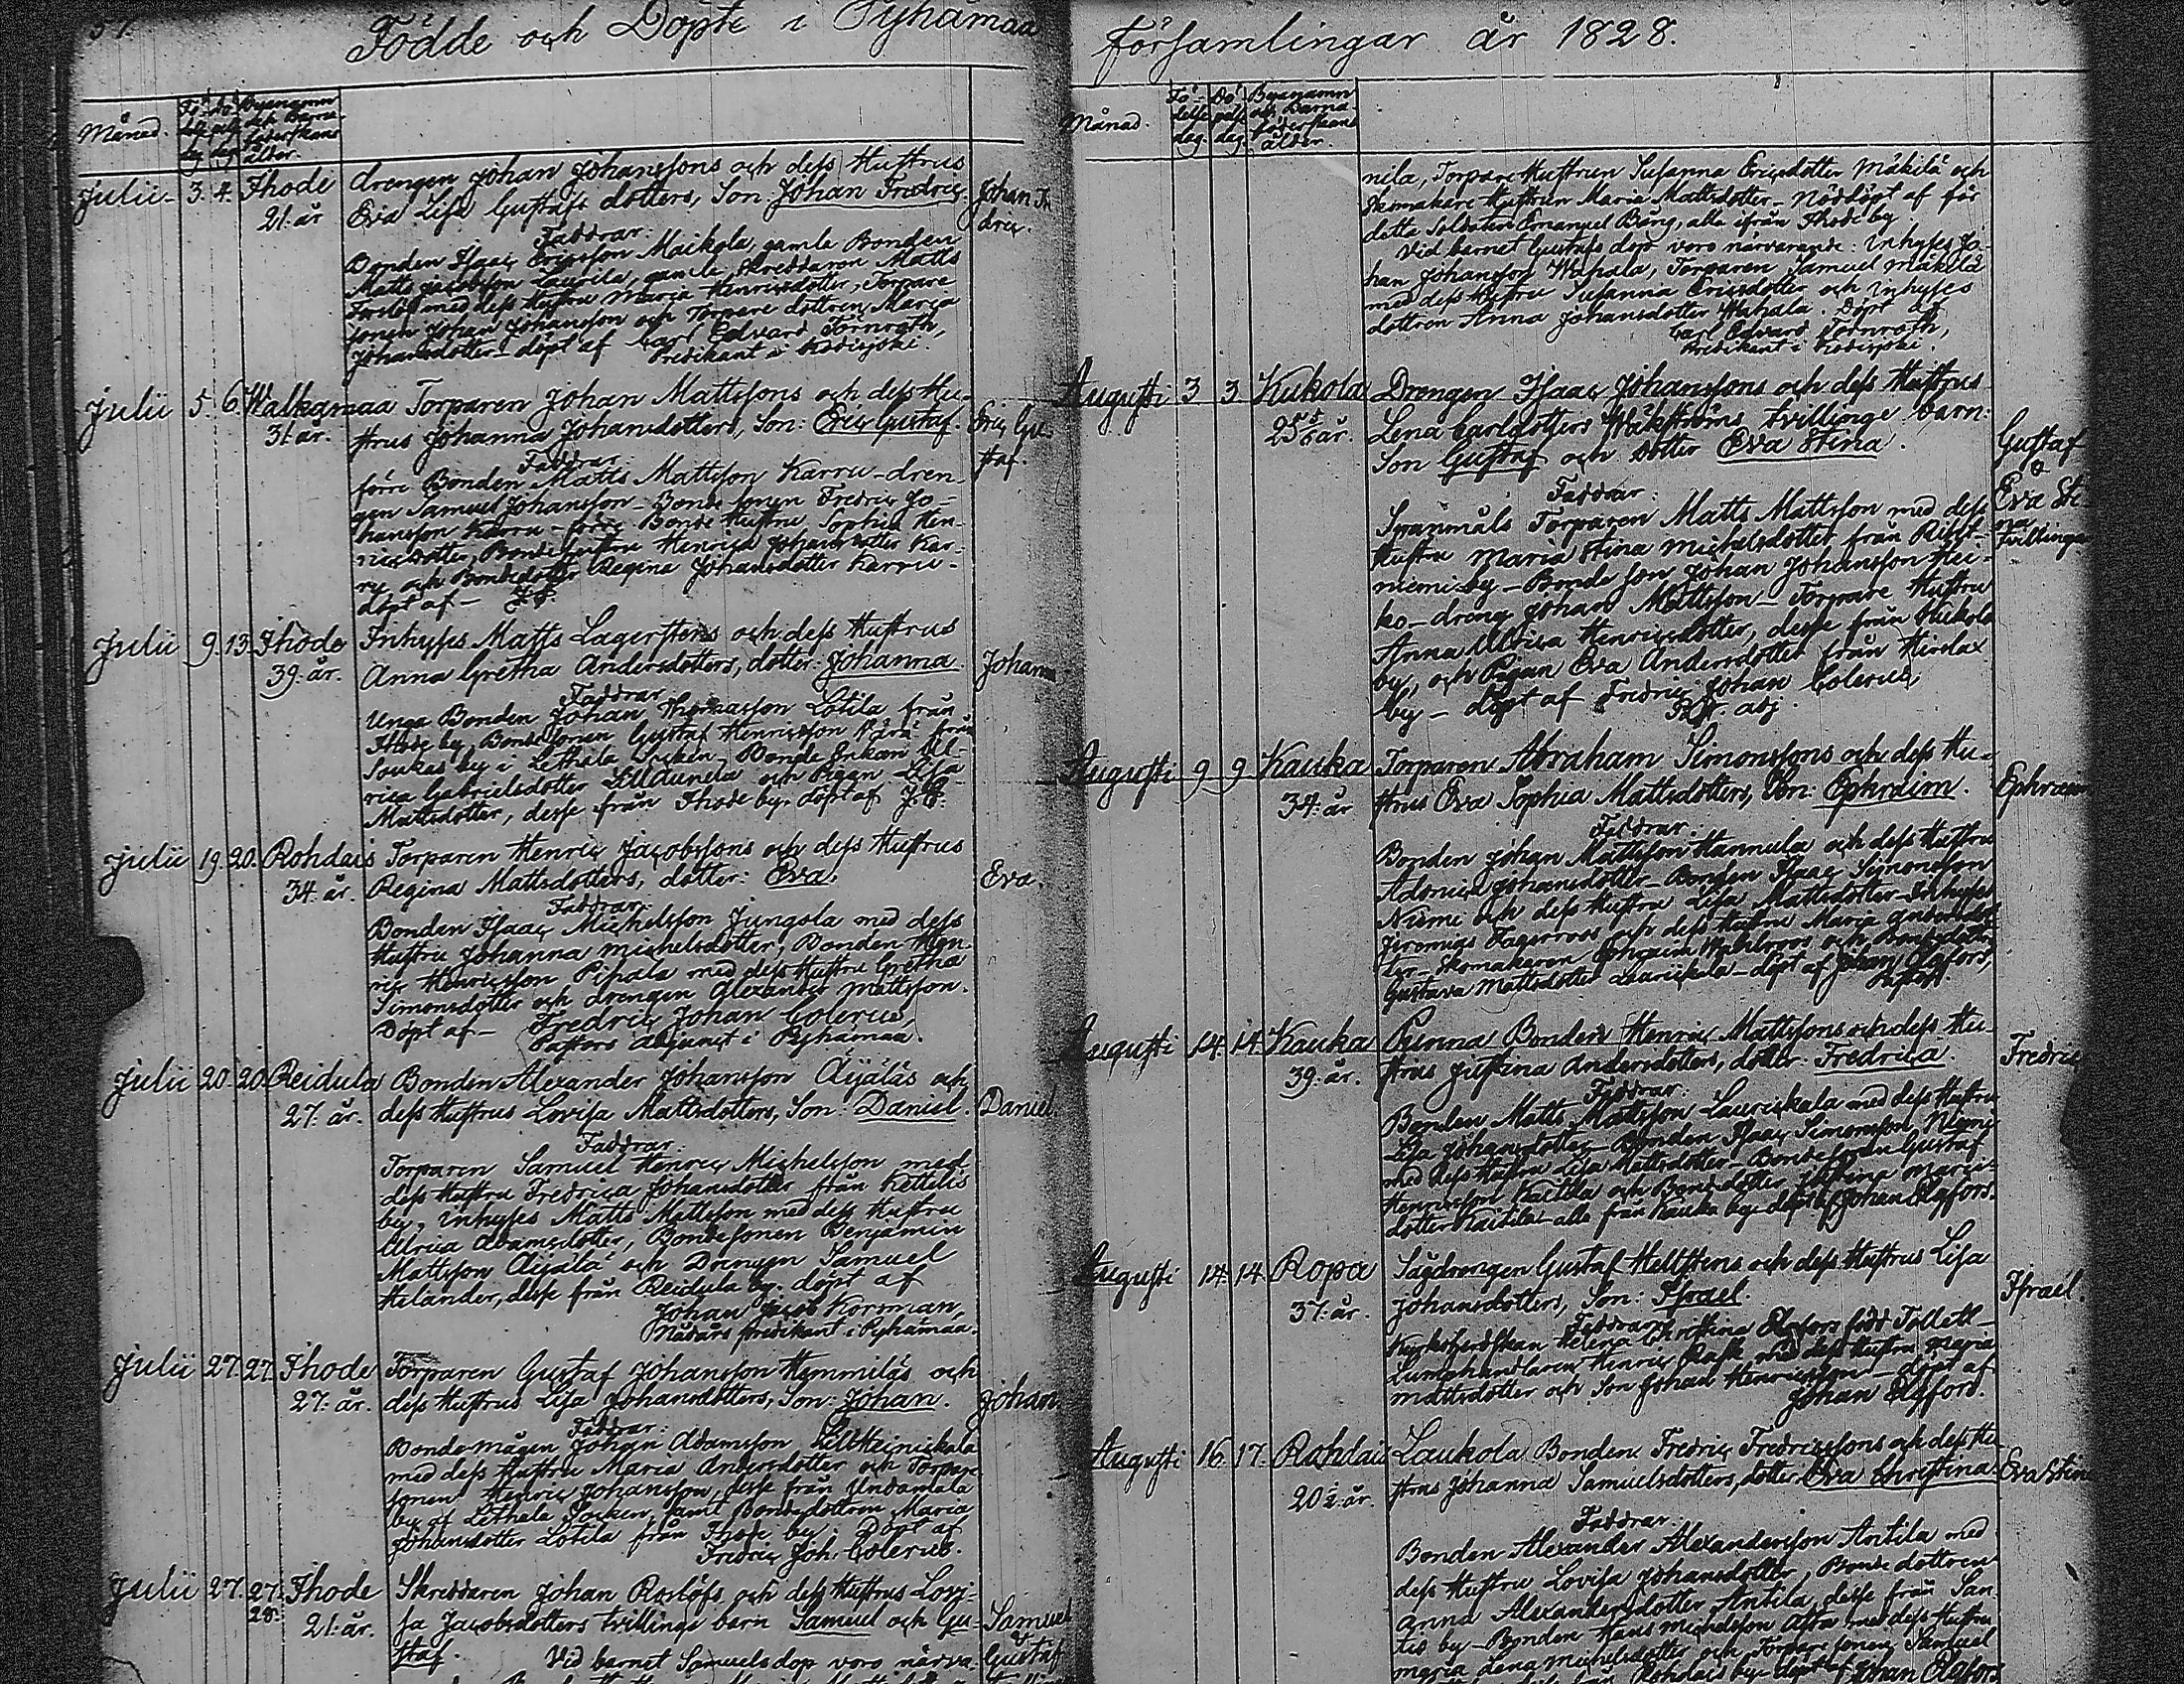 57.
Födde och Döpte i Pyhämaa
Månad. Fö- Dö- Byenamn
delse pelse och Barna-
dag dag föderskans
ålder.
Julii 3. 4. Ihode drengen Johan Johanssons och dess Hustrus
21. år Eva Lisa Gustafs dotters, Son Johan Fredric. Johan Fre
dric.
Faddrar:
Bonden Isaac Ericsson Maikola, gamle Bonden
Matts Jacobsson Laurila, gamle skreddaren Matts
med dess Hustru Maria Henricsdotter, Torpare
sonen Johan Johansson och Torpare dottren Maria
Johansdotter - döpt af Carl Edvard Törnroth,
Predikant i Kodisjoki.
Julii 5. 6. Walkamaa Torparen Johan Mattssons och dess Hu-
31. år. strus Johanna Johansdotters, Son: Eric Gustaf. Eric Gu-
staf.
Faddrar
förre Bonden Matts Mattsson Karru - dren-
gen Samuel Johansson - Bonde sonen Fredric Jo-
hansson Karru - förre Bonde Hustru Sophia Hen-
ricsdotter, Bondehustru Henrica Johansdotter Kar-
ru och Bondedotter Regina Johansdotter Karru -
döpt af -
Julii 9. 13. Ihode Inhyses Matts Lagerstens och dess Hustrus
39. år. Anna Gretha Andersdotters, dotter: Johanna Johanna
Faddrar
Unga Bonden Johan Thomasson Lotila från
Ihode by, Bonde sonen Gustaf Henricsson från
Soukas by i Lethala Socken, Bonde Enkan Ul-
rica Gabrielsdotter och Pigan Lisa
Mattsdotter, desse från Ihode by. döpt af
Julii 19. 20. Rohdais Torparen Henric Jacobssons och dess Hustrus
34. år. Regina Mattsdotters, dotter: Eva. Eva.
Faddrar:
Bonden Isaac Michelsson Jungola med dess
Hustru Johanna Michelsdotter, Bonden Hen-
ric Henricsson Pihala med dess Hustru Gretha
Simonsdotter och drengen Alexander Mattsson.
Döpt af - Fredric Johan Colerus,
Pastors Adjunct i Pyhämaa.
Julii 20. 20. Reidula Bonden Alexander Johansson Äijäläs och
27. år. dess Hustrus Lovisa Mattsdotters, Son: Daniel. Daniel.
Faddrar:
Torparen Samuel Henric Michelsson med
dess Hustru Fredrica Johansdotter från Kettelis
by, inhyses Matts Mattsson med dess Hustru
Ulrica Adamsdotter, Bondesonen Benjamin
Mattsson Äijälä och Drengen Samuel
Helander, desse från Reidula by. döpt af
Johan Jacob Korsman,
Nådårs predikant i Pyhämaa.
Julii 27. 27. Ihode Torparen Gustaf Johansson Hemmiläs och
27. år. dess Hustrus Lisa Johansdotters, Son: Johan. Johan
Faddrar:
Bonde-mågen Johan Adamsson
med dess Hustru Maria Andersdotter och Torpare
sonen Henric Johansson, desse från Undamala
by af Lethala Socken, samt Bondedottren Maria
Johansdotter Lotila från Ihode by. Döpt af
Fredric Joh. Colerus.
Julii 27. 27. Ihode Skreddaren Johan Roslöfs och dess Hustrus Lovi-
28. 21. år. sa Jacobsdotters tvillinge barn Samuel och Gu- Samuel
staf. Vid barnet Samuels dop voro närva- Gustaf
Församlingar år 1828.
Månad. Fö- Dö- Byenamn
delse pelse och Barna-
dag. dag. föderskans
ålder.
nila, Torpare Hustrun Susanna Ericsdotter Mäkilä och
Skomakare Hustrun Maria Mattsdotter - Nöddöpt af för
dette Soldaten Emanuel Bång, alla ifrån Ihode by.
Vid barnet Gustafs dop voro närvarande: inhyses Jo-
han Johansson Wahala, Torparen Samuel Mäkilä
med dess Hustru Susanna Ericsdotter och inhyses
dottren Anna Johansdotter Wahala. Döpt af
Carl Edvard Törnroth,
Predikant i Kodisjoki.
Augusti 3 3 Kukola Drengen Isaac Johanssons och dess Hustrus
25 år. Lena Carlsdotters Wikströms tvillinge barn:
Son Gustaf och dotter Eva Stina. Gustaf
&
Eva Sti-
na
tvillingar
Faddrar:
Torparen Matts Mattsson med dess
Hustru Maria Stina Michelsdotter från
niemi by - Bonde son Johan Johansson Hei-
ko - dräng Johan Mattsson - Torpare Hustru
Anna Ulrica Henricsdotter, desse från Kukola
by, och Pigan Eva Andersdotter från Hirslax
by - döpt af Fredric Johan Colerus,
Past. adj.
Augusti 9 9 Kauka Torparen Abraham Simonssons och dess Hu-
34. år strus Eva Sophia Mattsdotters, Son: Ephraim. Ephraim
Faddrar.
Bonden Johan Mattsson Hannula och dess Hustru
Johansdotter - Bonden Isaac Simonsson
Niemi och dess Hustru Lisa Mattsdotter - Inhyses
Jeremias Fagerroos och dess Hustru Maria
ter - Skomakaren Ephraim Wahlroos och Bondedotter
Gustava Mattsdotter Laurickala - döpt af Johan Elgfors,
Augusti 14. 14. Kauka Bonden Henric Mattssons och dess Hu-
39. år. strus Justina Andersdotters, dotter: Fredrica. Fredrica
Faddrar:
Bonden Matts Mattsson Laurickala med dess Hustru
Lisa Johansdotter - Bonden Isaac Simonsson Niemi
med dess Hustru Lisa Mattsdotter - Gustaf
Henricsson och Bondedotter
dotter - alla från Kauka by. döpt af Johan Elgfors.
Augusti 14. 14. Ropa Sågdrengen Gustaf Hellstens och dess Hustrus Lisa
37. år. Johansdotters, Son: Israel. Israel.
Faddrar:
Helena Christina Elgfors född
Lumphandlaren Henric Rask med dess Hustru Maria
Mattsdotter och Son Johan Henricsson - döpt af
Johan Elgfors.
Augusti 16. 17. Rohdais Laukola Bonden Fredric Fredricssons och dess Hu-
20½ år. strus Johanna Samuelsdotters, dotter Eva Christina. Eva Stina
Faddrar:
Bonden Alexander Alexandersson Antila med
dess Hustru Lovisa Johansdotter, Bonde dottren
Anna Alexandersdotter Antila, desse från San-
tis by - Bonden Hans Michelsson med dess Hustru
Maria Lena Michelsdotter och Torpare sonen Samuel
Rohdais by. döpt af Johan Elgfors